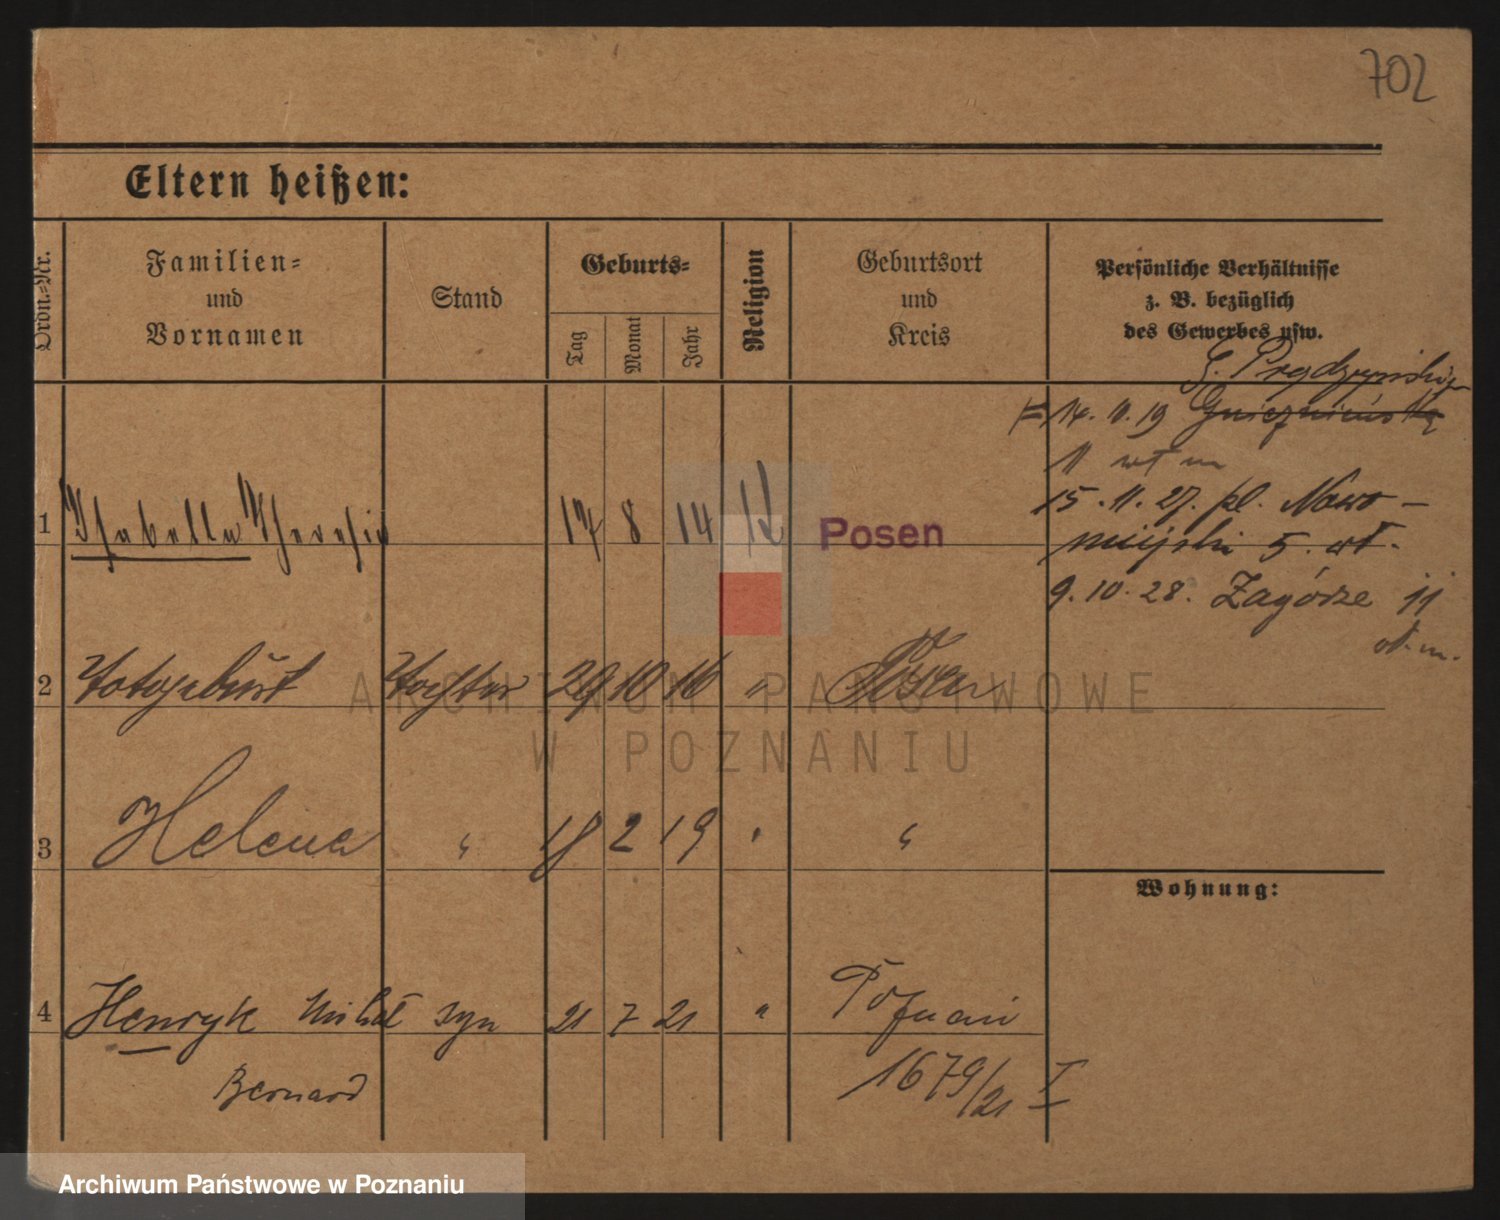 702
Eltern heißen:
Ordn.-Nr.
Familien-
und
Vornamen
Stand
Geburts-
Tag
Monat
Jahr
Religion
Geburtsort
und
Kreis
Persönliche Verhältnisse
z. B. bezüglich
des Gewerbes usw.
14. 11. 19
15. 11. 27. pl. Nowo-
miejski 5. wł.
9. 10. 28. Zagórze 11
1 Isabella Theresia 17 8 14 K Posen
2 Totgeburt Tochter 29 10 16 " Posen
3 Helena " 18 2 19 " "
4 Henryk Michał syn 21 7 21 " Poznań
Bernard
1679/21 I
Wohnung:
ARCHIWUM PAŃSTWOWE
W POZNANIU
Archiwum Państwowe w Poznaniu